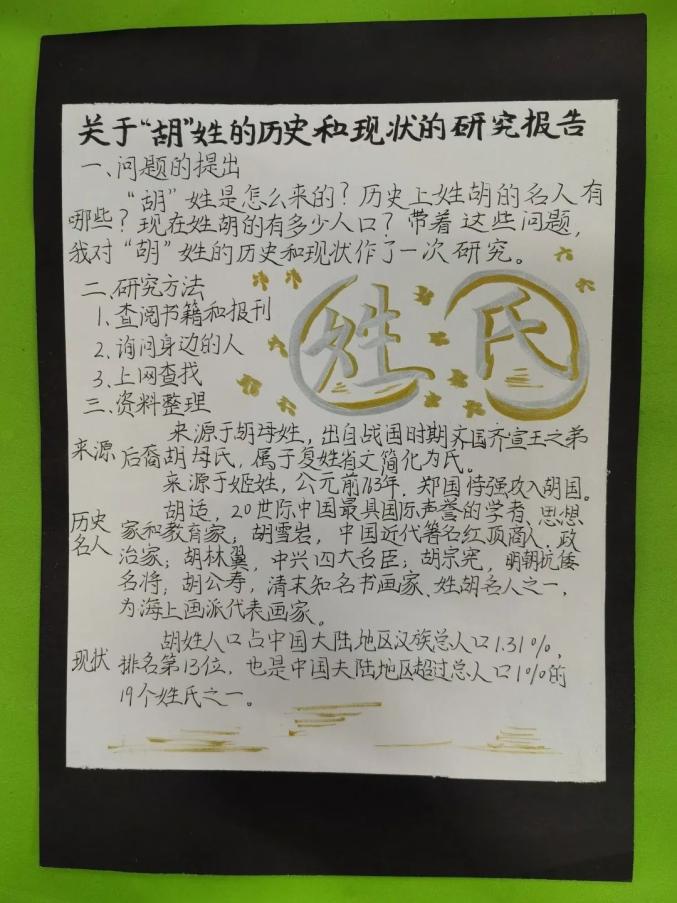 关于“胡”姓的历史和现状的研究报告
一、问题的提出
“胡”姓是怎么来的？历史上姓胡的名人有
哪些？现在姓胡的有多少人口？带着这些问题，
我对“胡”姓的历史和现状作了一次研究。
二、研究方法
1.查阅书籍和报刊
2.询问身边的人
3.上网查找
姓氏
三、资料整理
来源
来源于胡母姓，出自战国时期齐国齐宣王之弟
后裔胡母氏，属于复姓省文简化为氏。
来源于姬姓，公元前763年．郑国恃强攻入胡国。
历史
名人
胡适，20世际中国最具国际声誉的学者、思想
家和教育家；胡雪岩，中国近代著名红顶商人，政
治家；胡林翼，中兴四大名臣；胡宗宪，明朝抗倭
名将；胡公寿，清末知名书画家、姓胡名人之一，
为海上画派代表画家。
现状
胡姓人口占中国大陆地区汉族总人口1.31%，
排名第13位，也是中国大陆地区超过总人口1%的
19个姓氏之一。